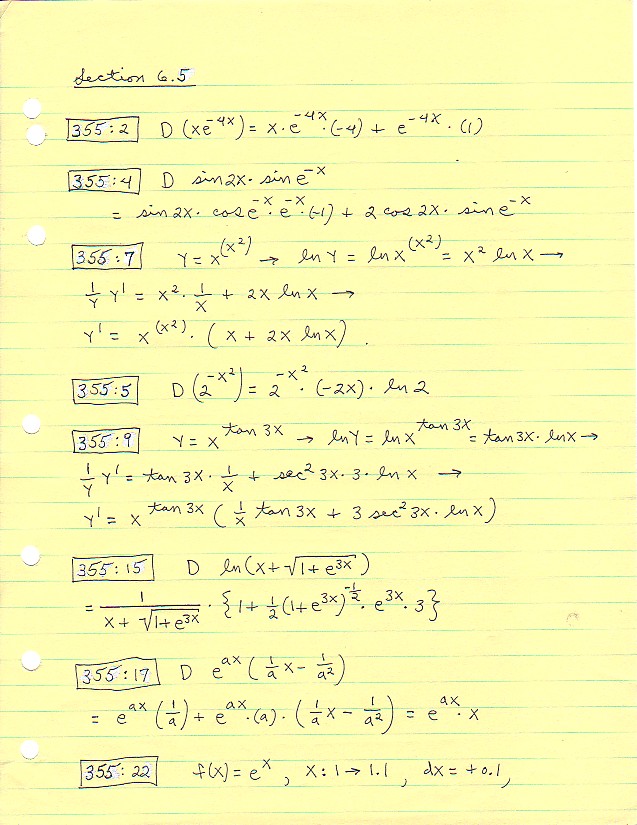 Section 6.5
355:2 D (xe^{-4x}) = x·e^{-4x}·(-4) + e^{-4x}·(1)
355:4 D sin2x· sin e^{-x}
= sin2x· cos e^{-x}·e^{-x}·(-1) + 2 cos2x· sin e^{-x}
355:7 Y = x^{(x^2)} → ln Y = ln x^{(x^2)} = x^2 ln x →
1/Y Y' = x^2· 1/x + 2x ln x →
Y' = x^{(x^2)}· (x + 2x ln x).
355:5 D (2^{-x^2}) = 2^{-x^2}· (-2x)· ln 2
355:9 Y = x^{tan 3x} → ln Y = ln x^{tan 3x} = tan 3x· ln x →
1/Y Y' = tan 3x· 1/x + sec^2 3x· 3· ln x →
Y' = x^{tan 3x} (1/x tan 3x + 3 sec^2 3x· ln x)
355:15 D ln(x + √(1+e^{3x}))
= 1/(x + √(1+e^{3x})) · {1 + 1/2 (1+e^{3x})^{-1/2}· e^{3x}· 3}
355:17 D e^{ax} (1/a x - 1/a^2)
= e^{ax} (1/a) + e^{ax}·(a)· (1/a x - 1/a^2) = e^{ax}· x
355:22 f(x) = e^x, x: 1 → 1.1, dx = +0.1,